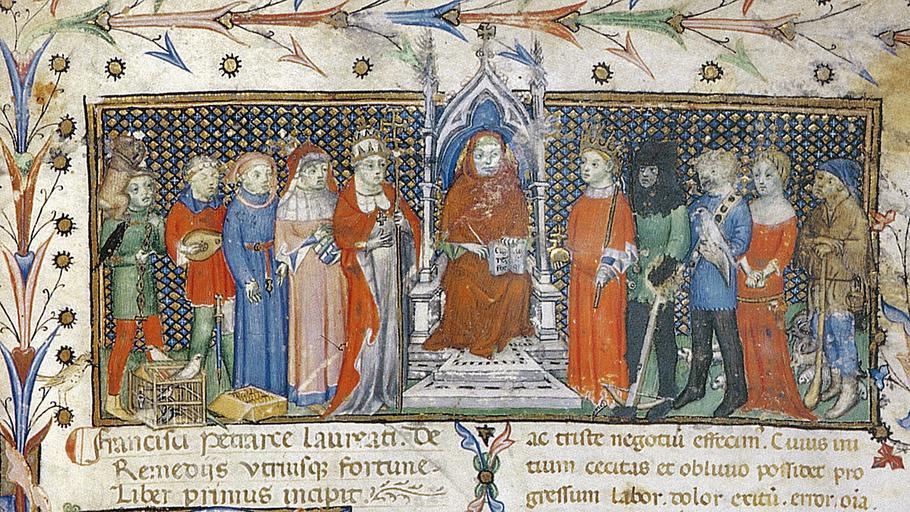 Francisci petrarce laureati. De
Remedijs utriusqȝ fortune
Liber primus incipit.
ac triste negotiũ effecim'. Cuius ini
tium cecitas et obliuio possidet pro
gressum labor. dolor exitũ. error. oĩa